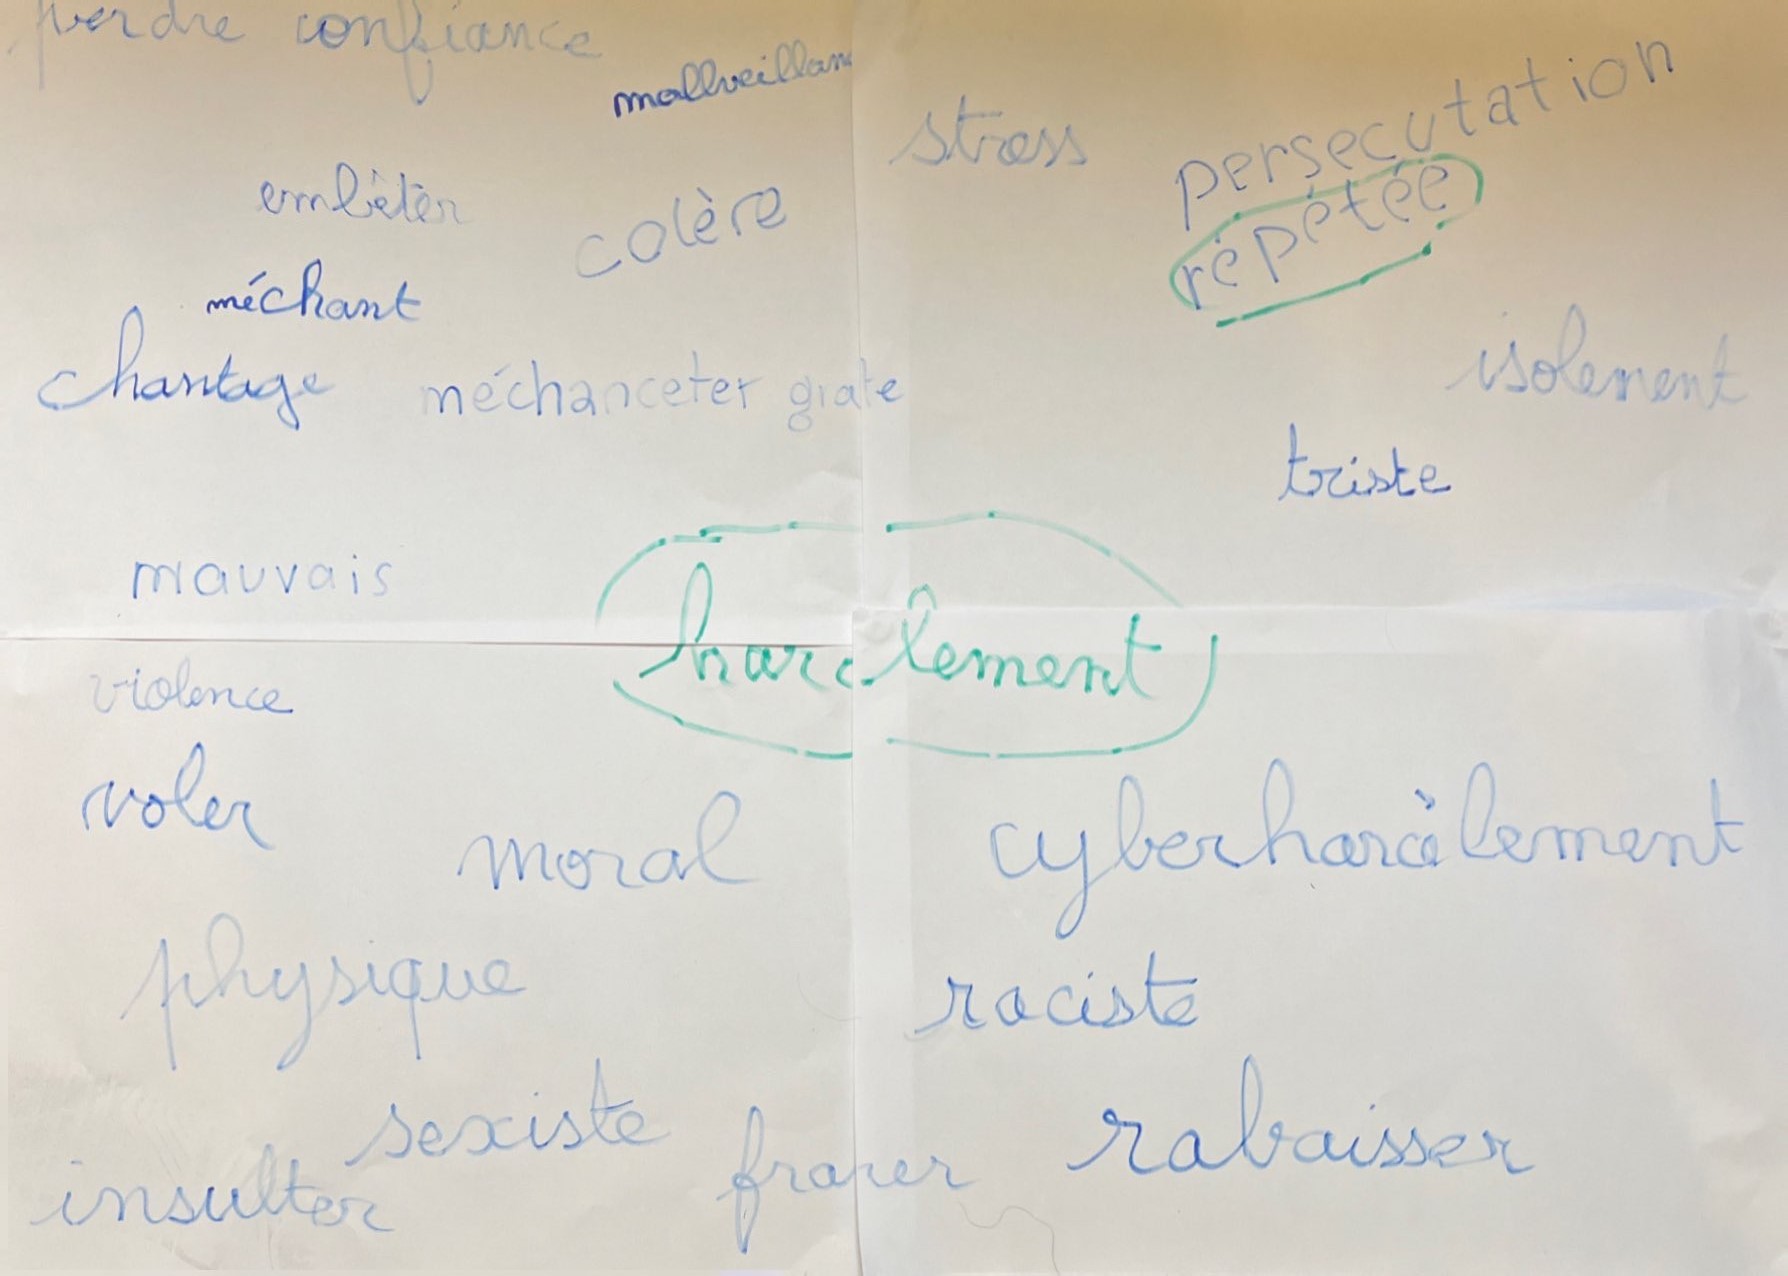 perdre confiance
mallveillan
stress
persecutation
répétée
embêter
colère
méchant
isolement
chantage
méchanceter
triste
mauvais
harcèlement
violence
voler
moral
cyberharcèlement
physique
raciste
sexiste
rabaisser
insulter